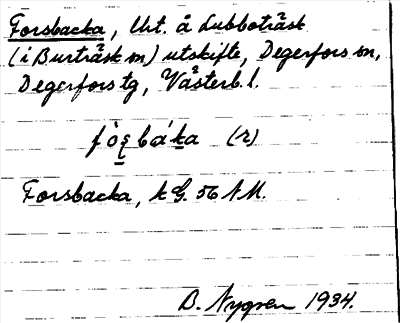 Forsbacka, Urt. å Lubboträsk
(i Burträsk sn) utskifte, Degerfors sn,
Degerfors tg, Västerb. l.
fòʂbáka (r)
Forsbacka, k G. 56 NM.
B. Nygren 1934.